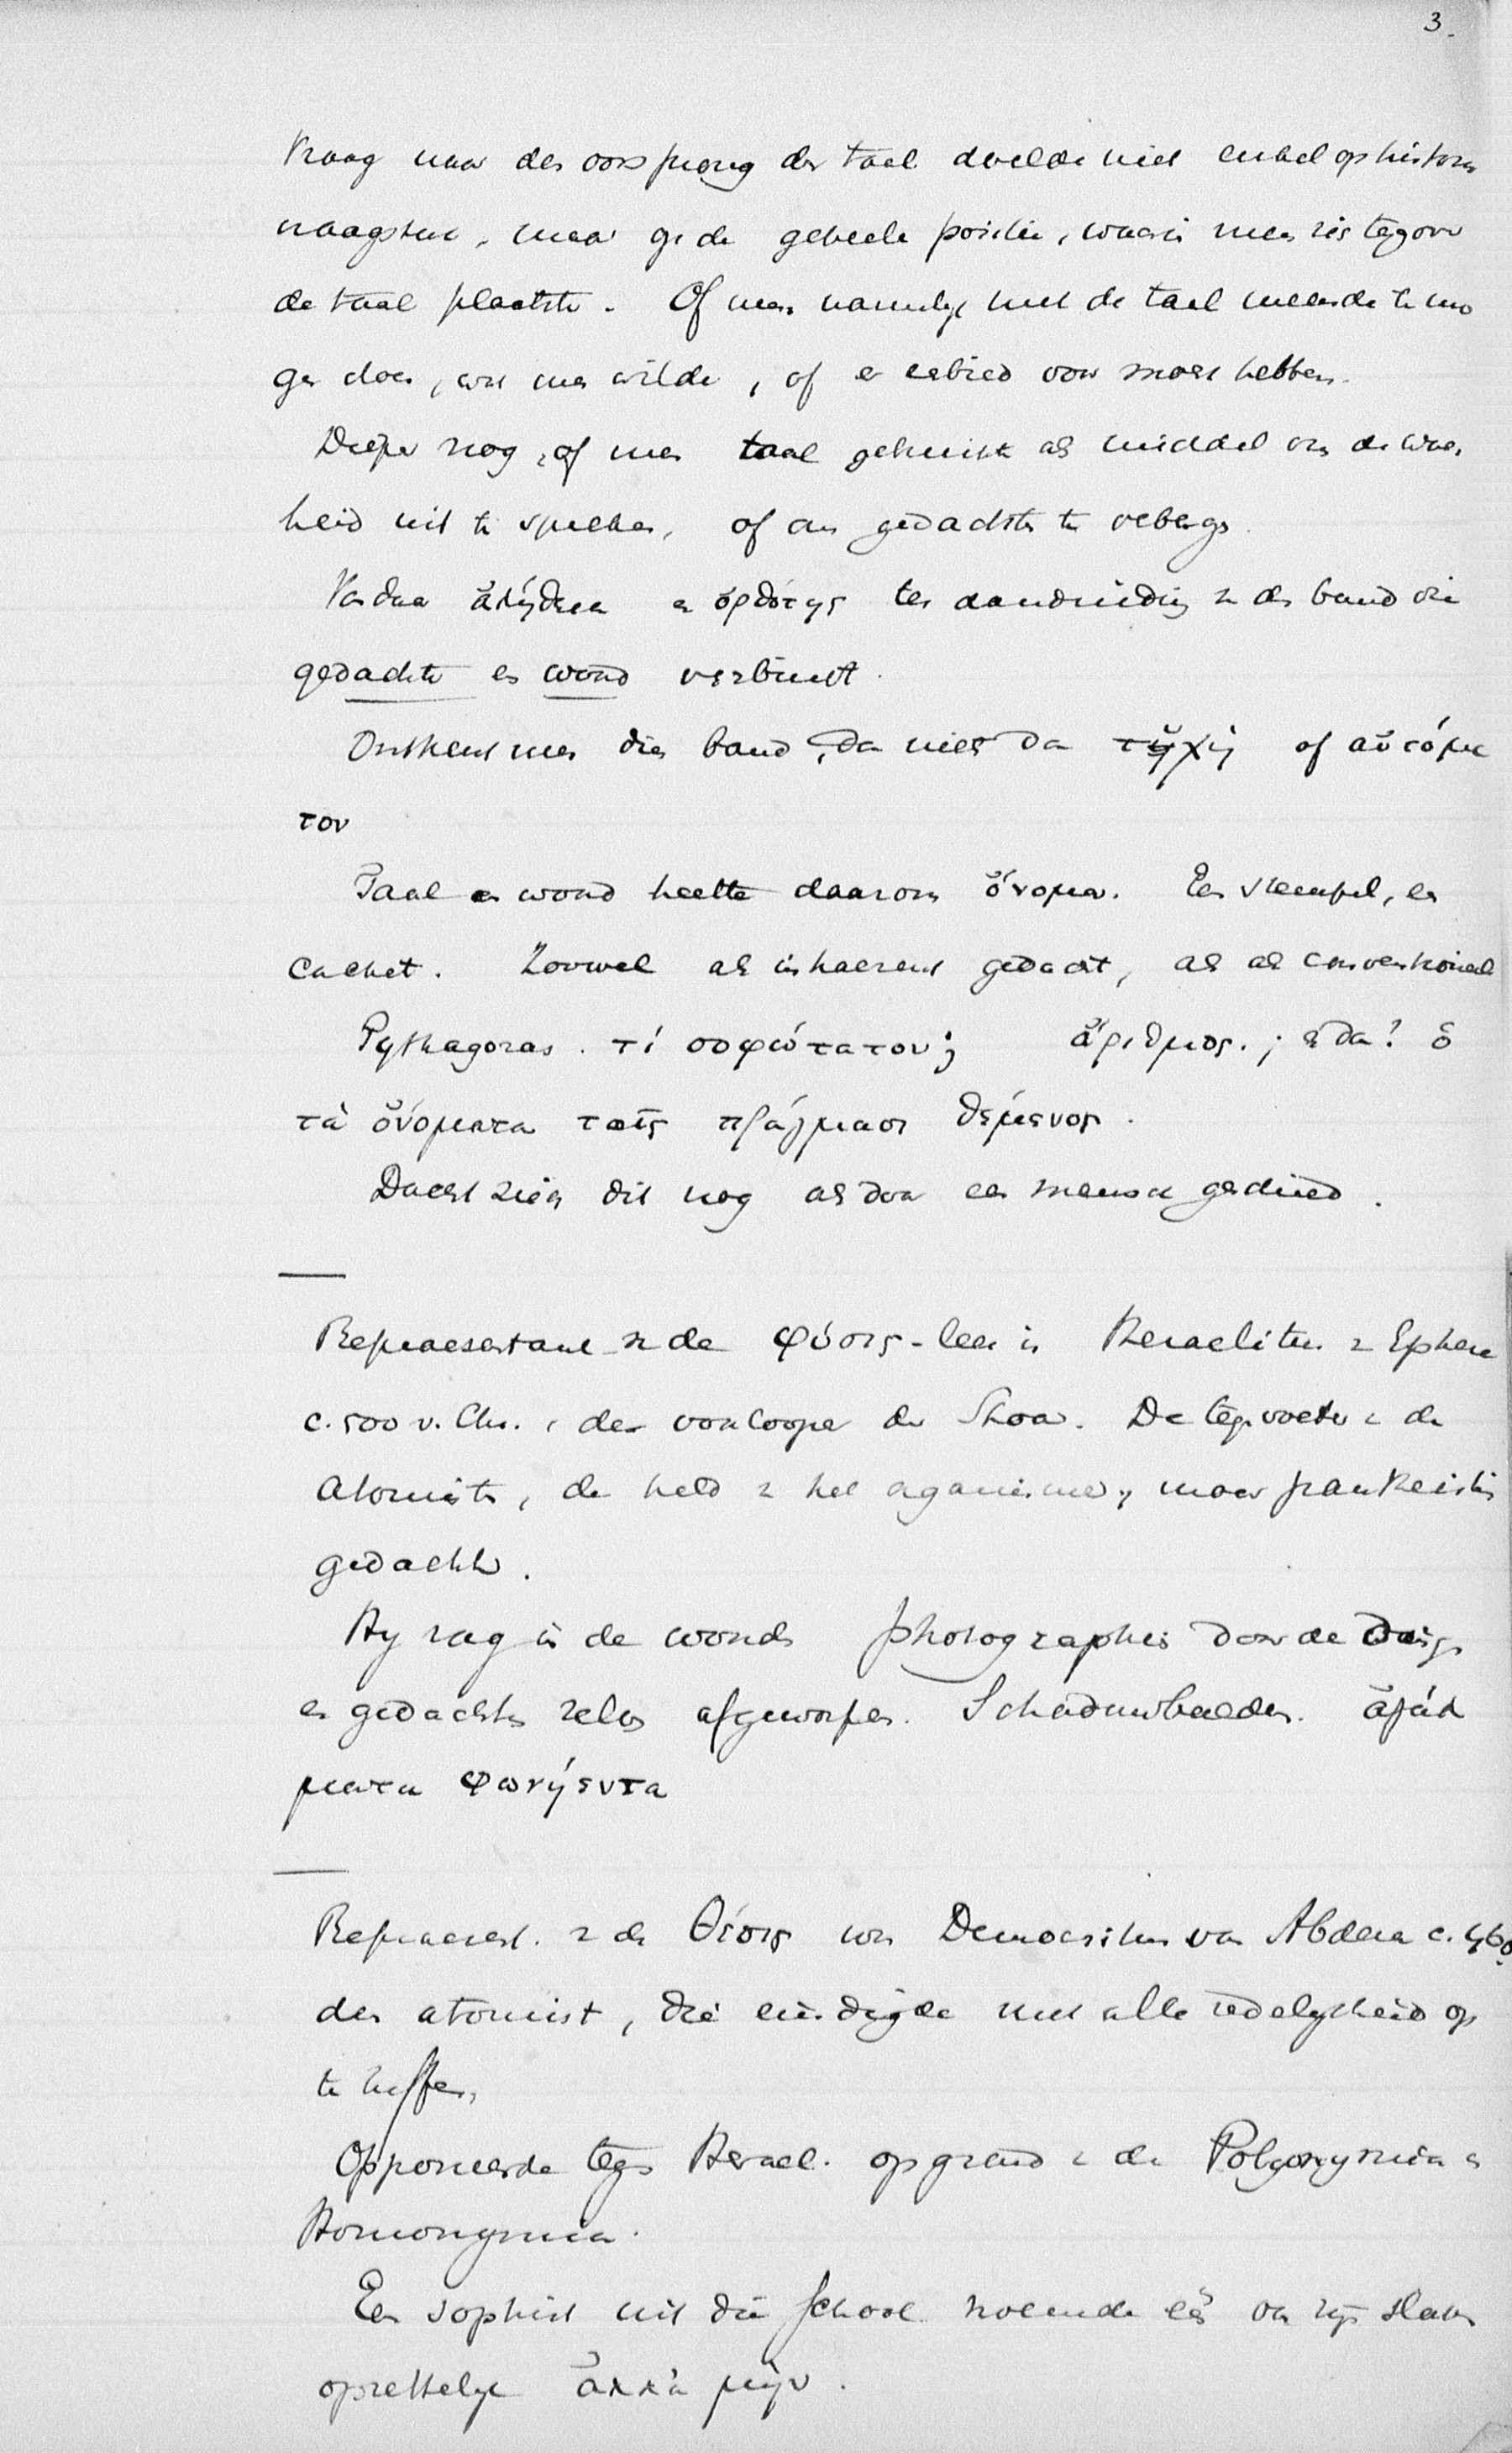 3.
Vraag naar den oorsprong der taal doelde niet enkel op histor.
vraagstuk, maar op de geheele positie, waarin men zich tegenover
de taal plaatste. Of men namelijk met de taal meende te mo
gen doen, wat men wilde, of er eerbied voor moest hebben.
Dieper nog, of men taal gebruikt als middel om de waar
heid uit te spreken, of om gedachten te verbergen.
Vandaar ἀλήθεια en ὀρθότης ter aanduiding v den band die
gedachte en woord verbindt.
Ontkent men dien band, dan niets dan τύχη of αὐτόμα
τον
Taal en woord heette daarom ὄνομα. Een stempel, een
cachet. Zoowel als inhaerent gedacht, als als conventioneel
Pythagoras. τί σοφώτατον; ἀριθμος.; en dan? ὁ
τὰ ὀνόματα τοῖς πράγμασι θέμενος.
Dacht zich dit nog als door een mensch geschied.
Repraesentant v de φύσις-leer is Heraclitus v Ephese
c. 500 v. Chr., den voorlooper der Stoa. De tegenvoeter v de
Atomisten, de held v het organisme, maar pantheistisch
gedacht.
Hij zag in de woorden photographien door de dingen
en gedachten zelven afgeworpen. Schaduwbeelden. ἀγάλ
ματα φωνήεντα
Repraesent. v de θέσις was Democritus van Abdera c. 460.
den atomist, die eindigde met alle redelijkheid op
te heffen,
Opponeerde tegen Heracl. op grond v de Polyonymia en
Homonymia.
Een sophist uit die school noemde een van zijn slaven
opzettelijk ἀλλὰ μήν.